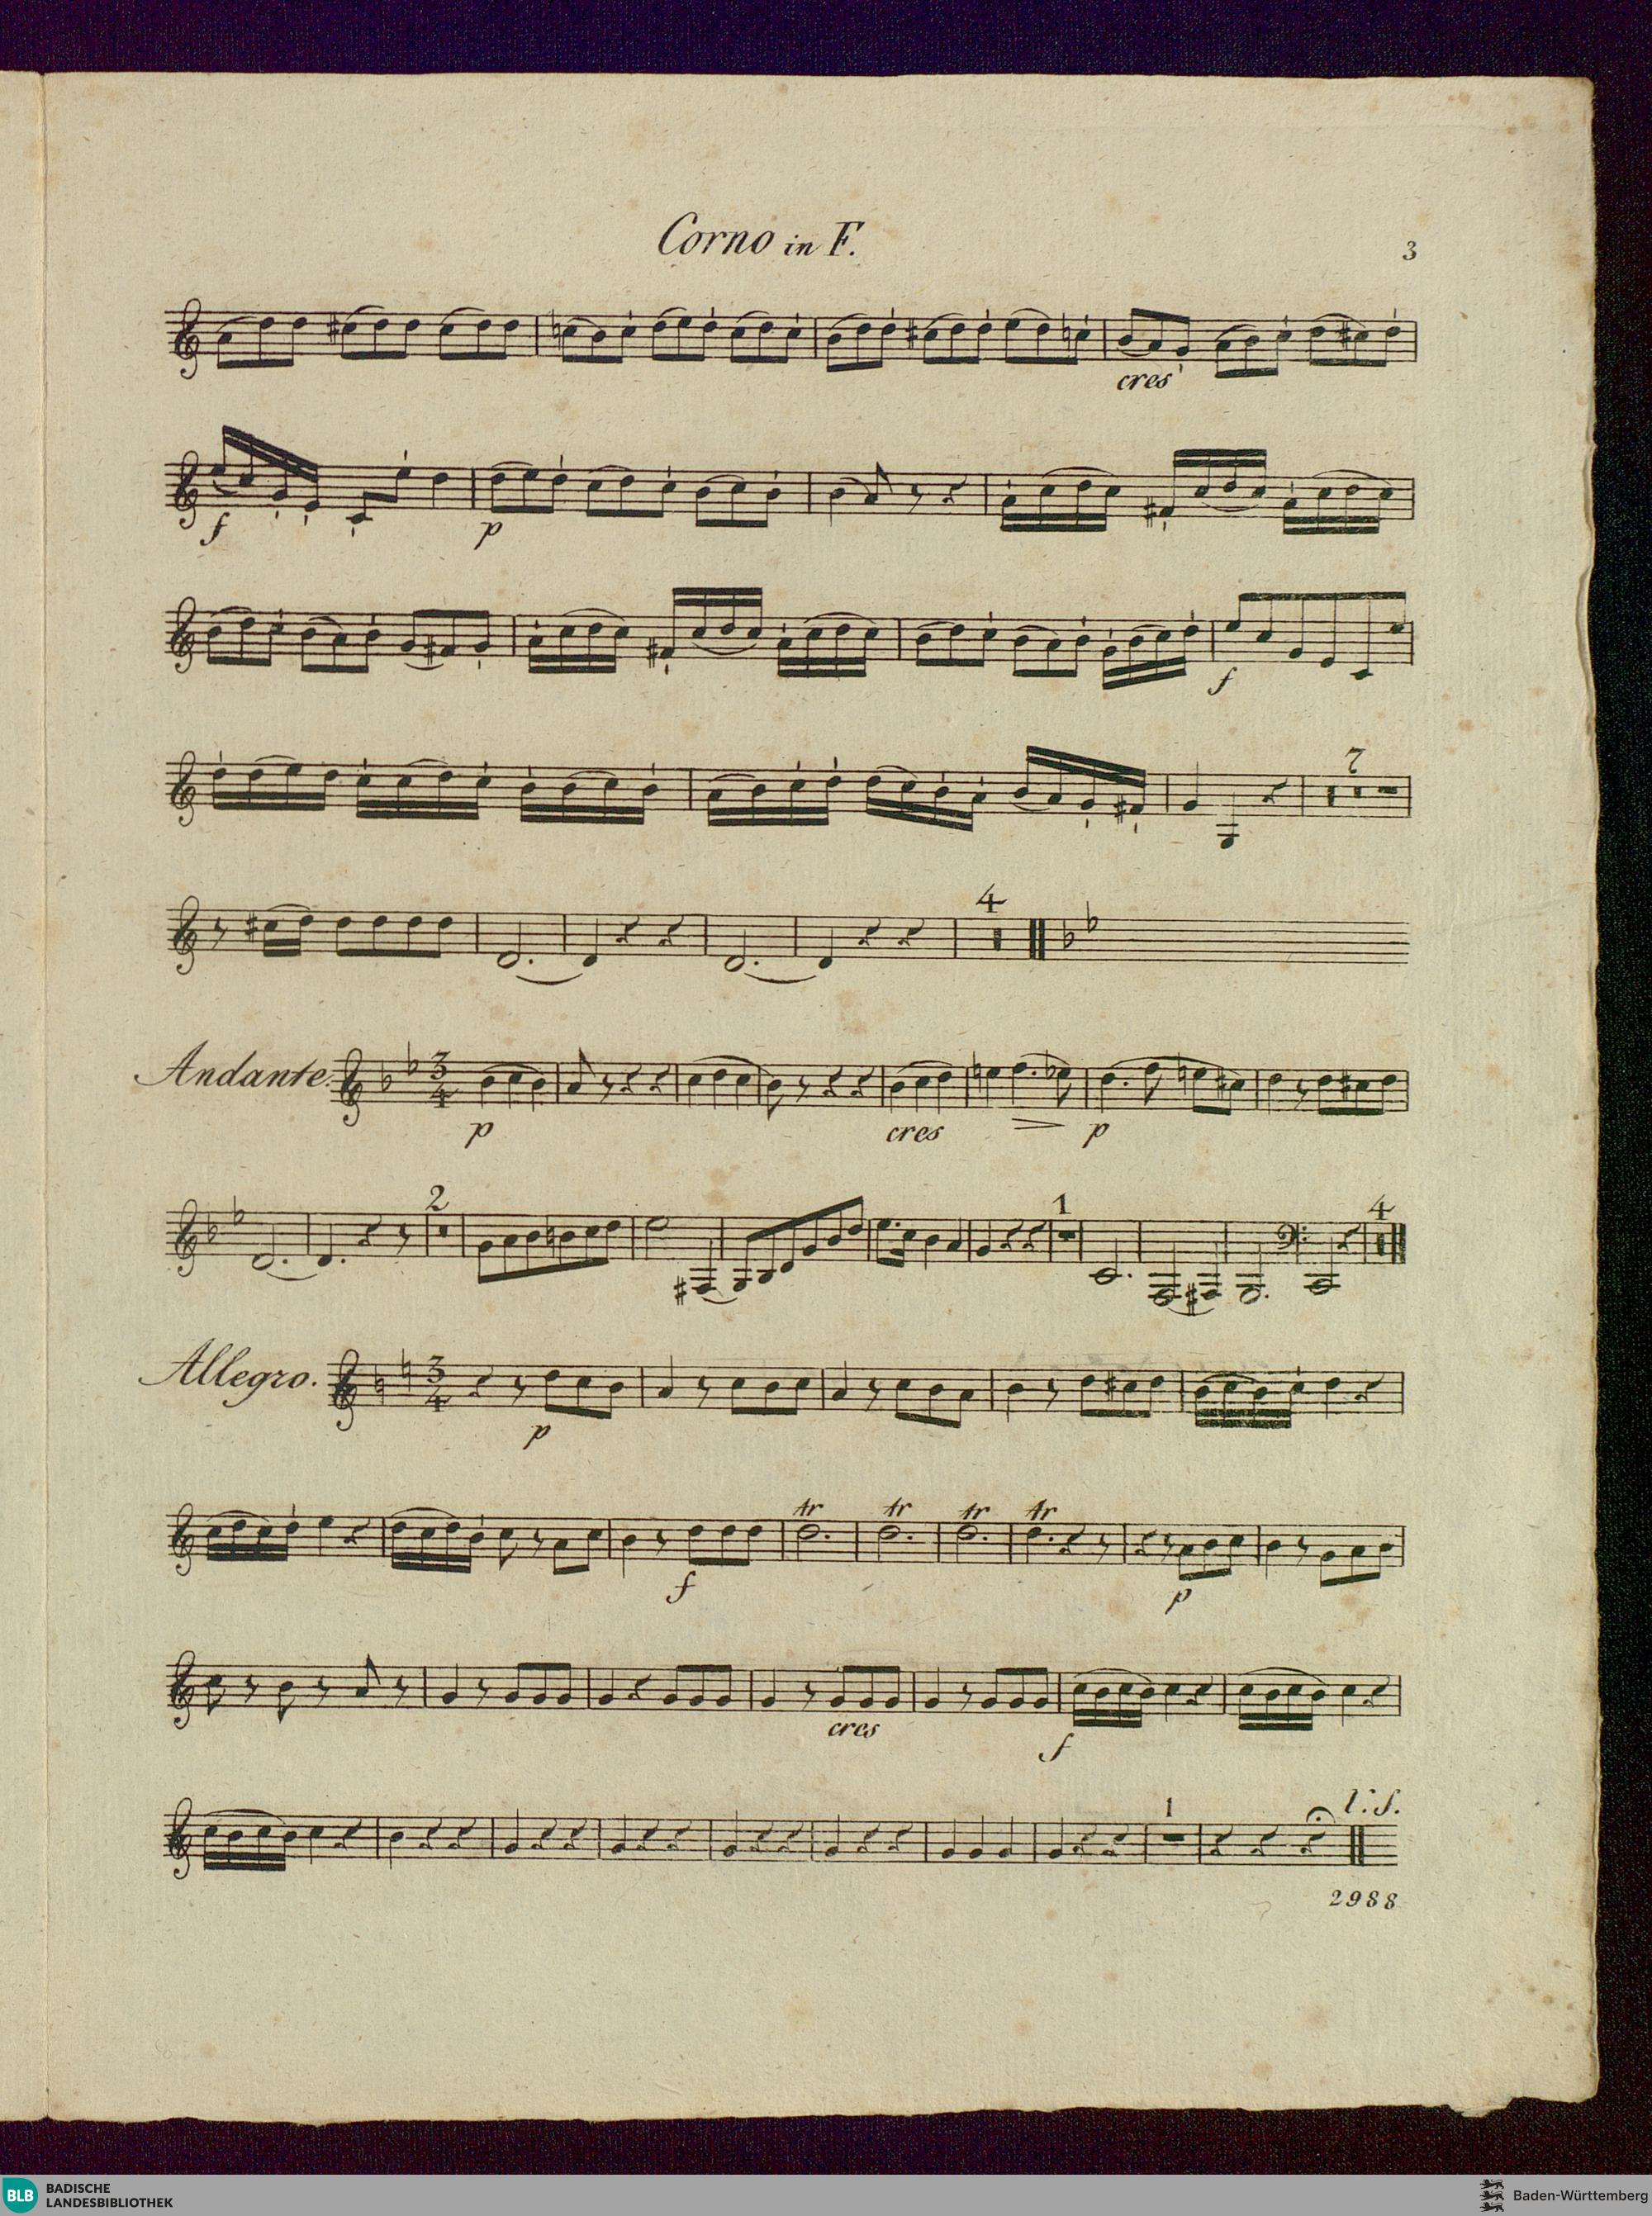 Corno in F.
3
cres
f
p
f
7
4
Andante.
3
4
p
cres
p
2
1
4
Allegro.
3
4
p
tr
tr
tr
tr
f
p
cres
f
1
l: s.
2988
BLB
BADISCHE
LANDESBIBLIOTHEK
Baden-Württemberg